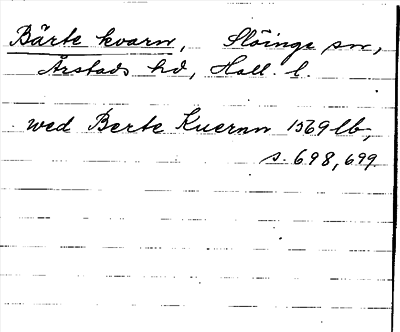 Bärte kvarn, Slöinge sn,
Årstads hd, Hall. l.
wed Berte Kuernn 1569 lb,
s. 698, 699